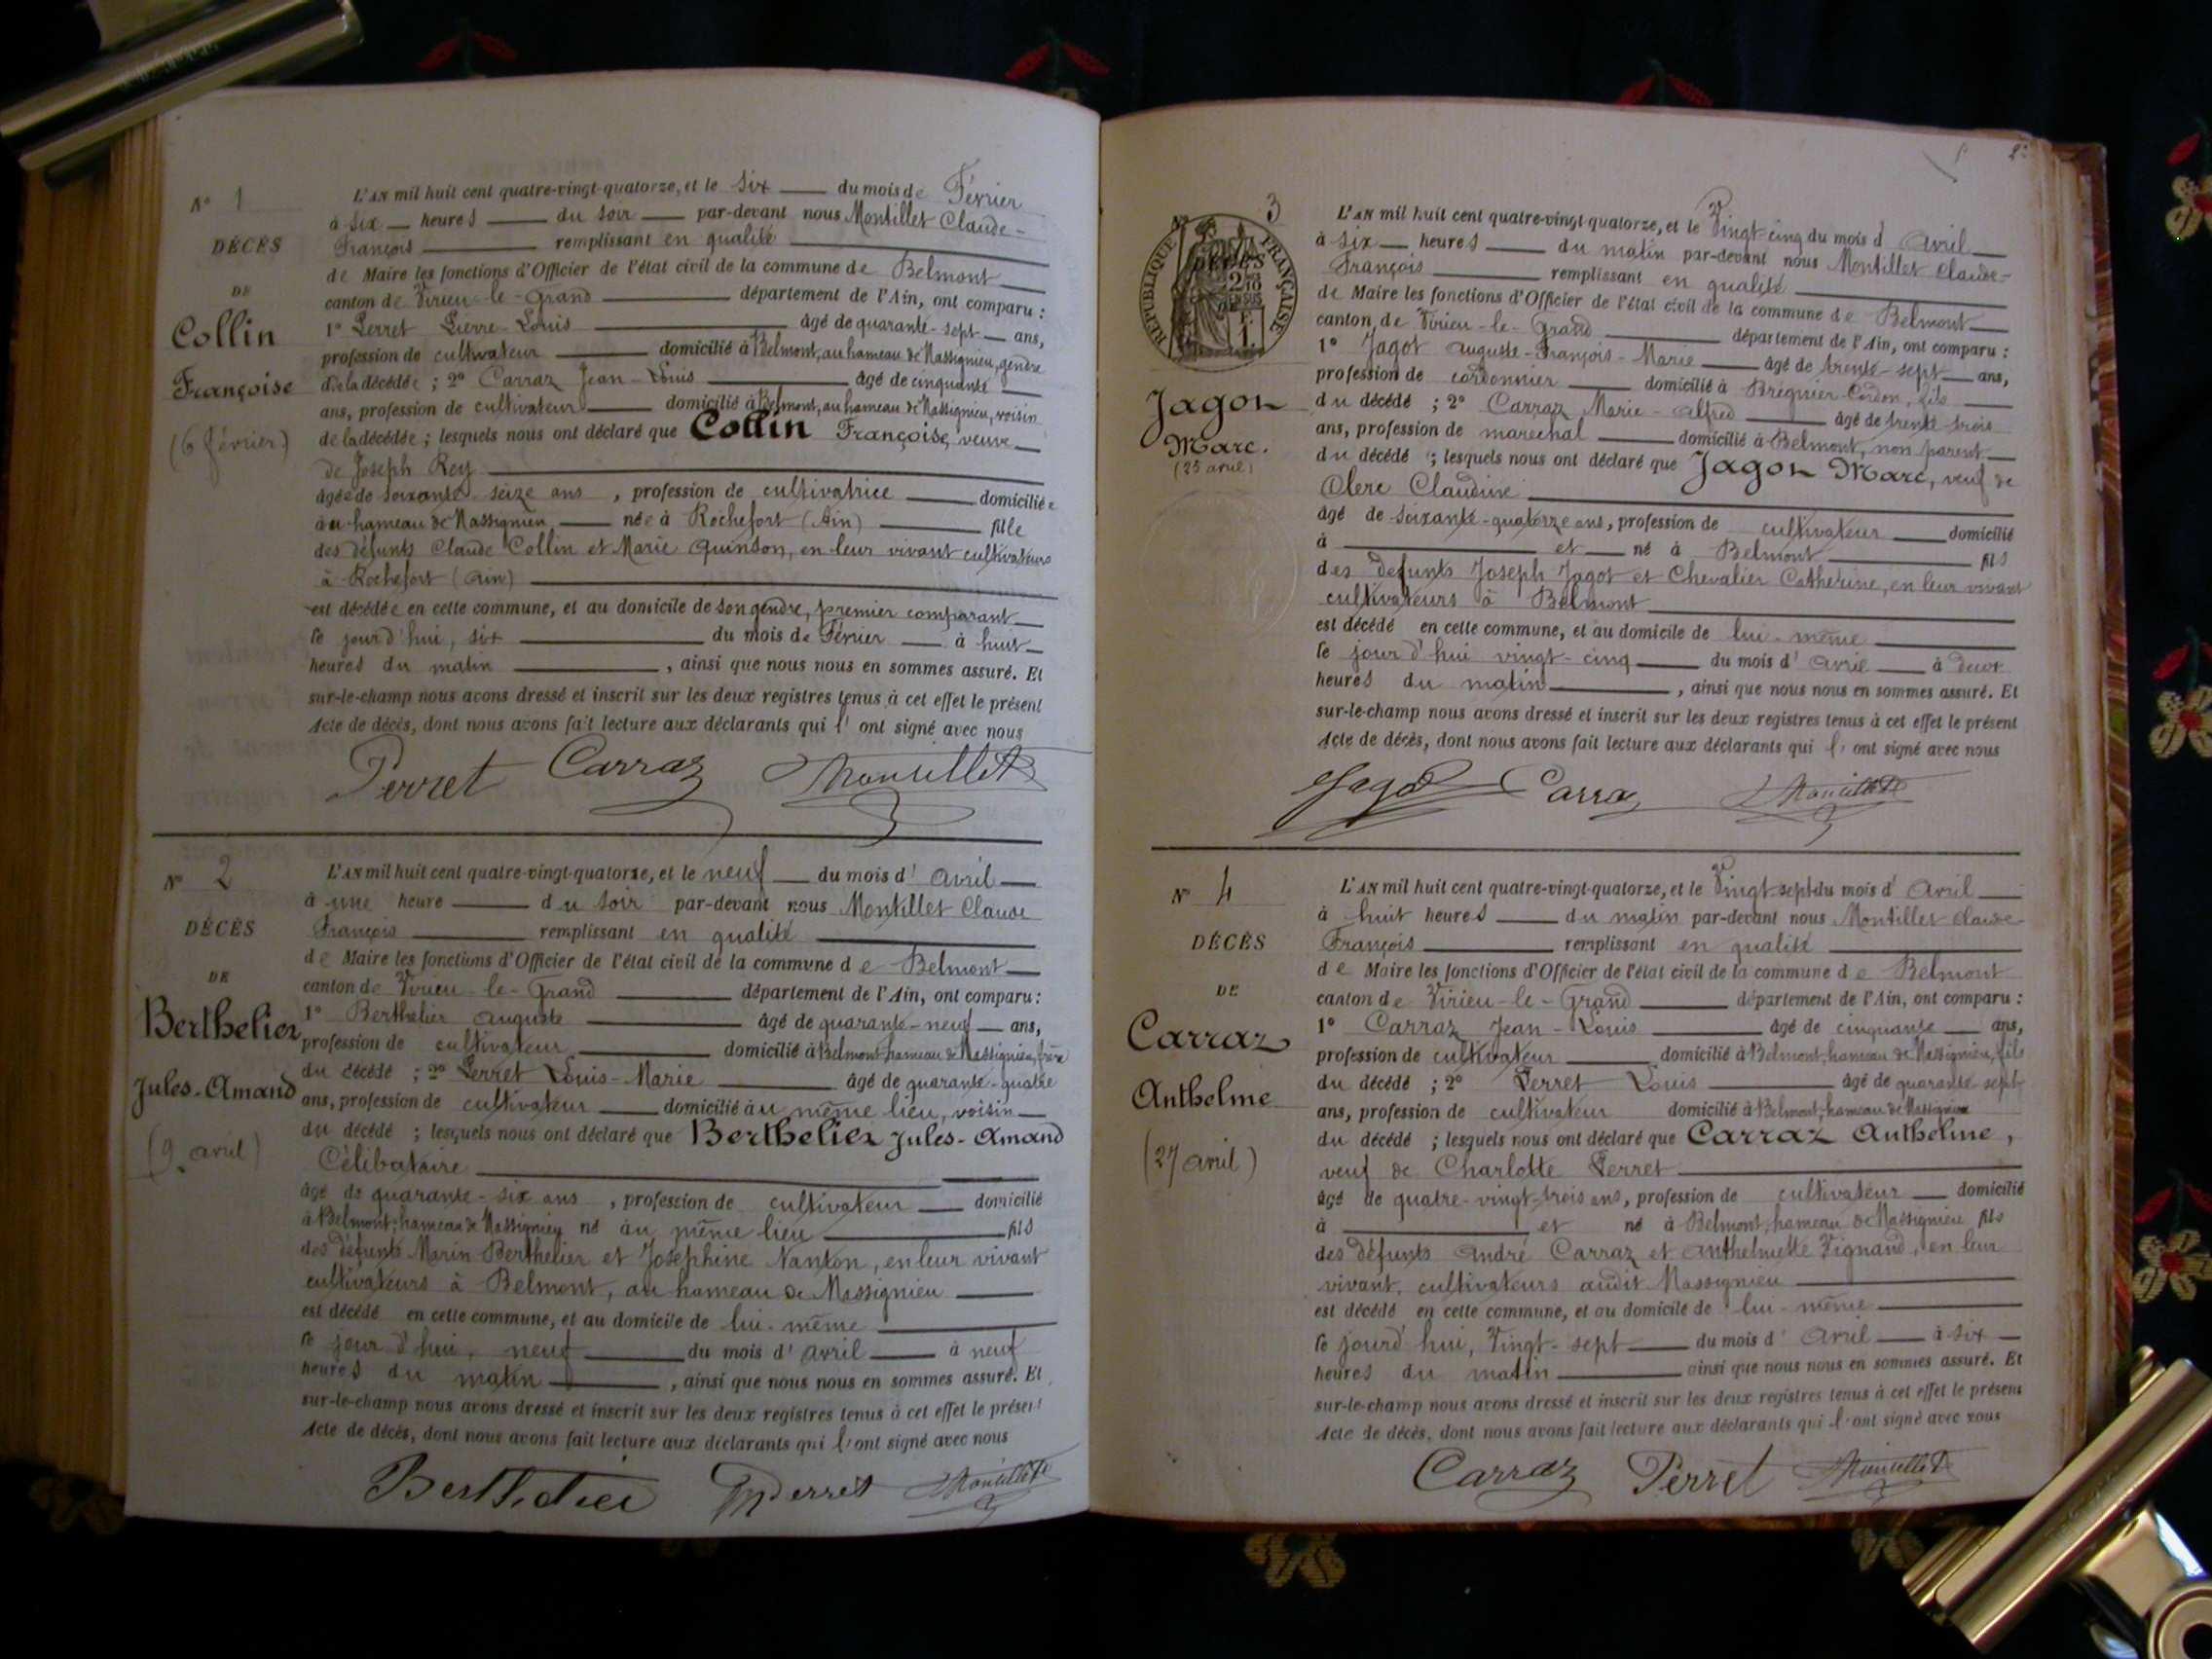 N° 1
DÉCÈS
DE
Collin
Françoise
(6 février)
L'AN mil huit cent quatre-vingt-quatorze, et le six du mois de Février
à six heures du soir par-devant nous Montillet Claude-
François remplissant en qualité
de Maire les fonctions d'Officier de l'état civil de la commune de Belmont
canton de Virieu-le-Grand département de l'Ain, ont comparu :
1° Perret Pierre-Louis âgé de quarante-sept ans,
profession de cultivateur domicilié à Belmont, au hameau de Massignieu, gendre
de la décédée ; 2° Carraz Jean-Louis âgé de cinquante
ans, profession de cultivateur domicilié à Belmont, au hameau de Massignieu, voisin
de la décédée ; lesquels nous ont déclaré que Collin Françoise, veuve
de Joseph Rey
âgée de soixante seize ans, profession de cultivatrice domiciliée
au hameau de Massignieu née à Rochefort (Ain) fille
des défunts Claude Collin et Marie Quinson, en leur vivant cultivateurs
à Rochefort (Ain)
est décédée en cette commune, et au domicile de son gendre, premier comparant
le jourd'hui, six du mois de Février à huit
heures du matin, ainsi que nous nous en sommes assuré. Et
sur-le-champ nous avons dressé et inscrit sur les deux registres tenus à cet effet le présent
Acte de décès, dont nous avons fait lecture aux déclarants qui l'ont signé avec nous
Perret Carraz Montillet
N° 2
DÉCÈS
DE
Berthelier
Jules-Amand
(9 avril)
L'AN mil huit cent quatre-vingt-quatorze, et le neuf du mois d'avril
à une heure du soir par-devant nous Montillet Claude
François remplissant en qualité
de Maire les fonctions d'Officier de l'état civil de la commune de Belmont
canton de Virieu-le-Grand département de l'Ain, ont comparu :
1° Berthelier Auguste âgé de quarante-neuf ans,
profession de cultivateur domicilié à Belmont, hameau de Massignieu, frère
du décédé ; 2° Perret Louis-Marie âgé de quarante-quatre
ans, profession de cultivateur domicilié au même lieu, voisin
du décédé ; lesquels nous ont déclaré que Berthelier Jules-Amand
Célibataire
âgé de quarante-six ans, profession de cultivateur domicilié
à Belmont, hameau de Massignieu né au même lieu fils
des défunts Marin Berthelier et Joséphine Nanton, en leur vivant
cultivateurs à Belmont, au hameau de Massignieu
est décédé en cette commune, et au domicile de lui-même
le jourd'hui, neuf du mois d'avril à neuf
heures du matin, ainsi que nous nous en sommes assuré. Et
sur-le-champ nous avons dressé et inscrit sur les deux registres tenus à cet effet le présent
Acte de décès, dont nous avons fait lecture aux déclarants qui l'ont signé avec nous
Berthelier Perret Montillet
2
N° 3
RÉPUBLIQUE FRANÇAISE
Jagot
Marc.
(25 avril)
L'AN mil huit cent quatre-vingt-quatorze, et le Vingt-cinq du mois d'avril
à six heures du matin par-devant nous Montillet Claude-
François remplissant en qualité
de Maire les fonctions d'Officier de l'état civil de la commune de Belmont
canton de Virieu-le-Grand département de l'Ain, ont comparu :
1° Jagot Auguste-François-Marie âgé de trente-sept ans,
profession de cordonnier domicilié à Brégnier-Cordon, fils
du décédé ; 2° Carraz Marie-Alfred âgé de trente-trois
ans, profession de maréchal domicilié à Belmont, non parent
du décédé ; lesquels nous ont déclaré que Jagot Marc, veuf de
Clerc Claudine
âgé de soixante-quatorze ans, profession de cultivateur domicilié
à et né à Belmont fils
des défunts Joseph Jagot et Chevalier Catherine, en leur vivant
cultivateurs à Belmont
est décédé en cette commune, et au domicile de lui-même
le jourd'hui vingt-cinq du mois d'avril à deux
heures du matin, ainsi que nous nous en sommes assuré. Et
sur-le-champ nous avons dressé et inscrit sur les deux registres tenus à cet effet le présent
Acte de décès, dont nous avons fait lecture aux déclarants qui l'ont signé avec nous
Jagot Carraz Montillet
N° 4
DÉCÈS
DE
Carraz
Anthelme
(27 avril)
L'AN mil huit cent quatre-vingt-quatorze, et le Vingt-sept du mois d'avril
à huit heures du matin par-devant nous Montillet Claude-
François remplissant en qualité
de Maire les fonctions d'Officier de l'état civil de la commune de Belmont
canton de Virieu-le-Grand département de l'Ain, ont comparu :
1° Carraz Jean-Louis âgé de cinquante ans,
profession de cultivateur domicilié à Belmont, hameau de Massignieu, fils
du décédé ; 2° Perret Louis âgé de quarante sept
ans, profession de cultivateur domicilié à Belmont, hameau de Massignieu
du décédé ; lesquels nous ont déclaré que Carraz Anthelme,
veuf de Charlotte Perret
âgé de quatre-vingt-trois ans, profession de cultivateur domicilié
à et né à Belmont, hameau de Massignieu fils
des défunts André Carraz et Anthelmette Vignand, en leur
vivant, cultivateurs audit Massignieu
est décédé en cette commune, et au domicile de lui-même
le jourd'hui, Vingt-sept du mois d'avril à six
heures du matin ainsi que nous nous en sommes assuré. Et
sur-le-champ nous avons dressé et inscrit sur les deux registres tenus à cet effet le présent
Acte de décès, dont nous avons fait lecture aux déclarants qui l'ont signé avec nous
Carraz Perret Montillet